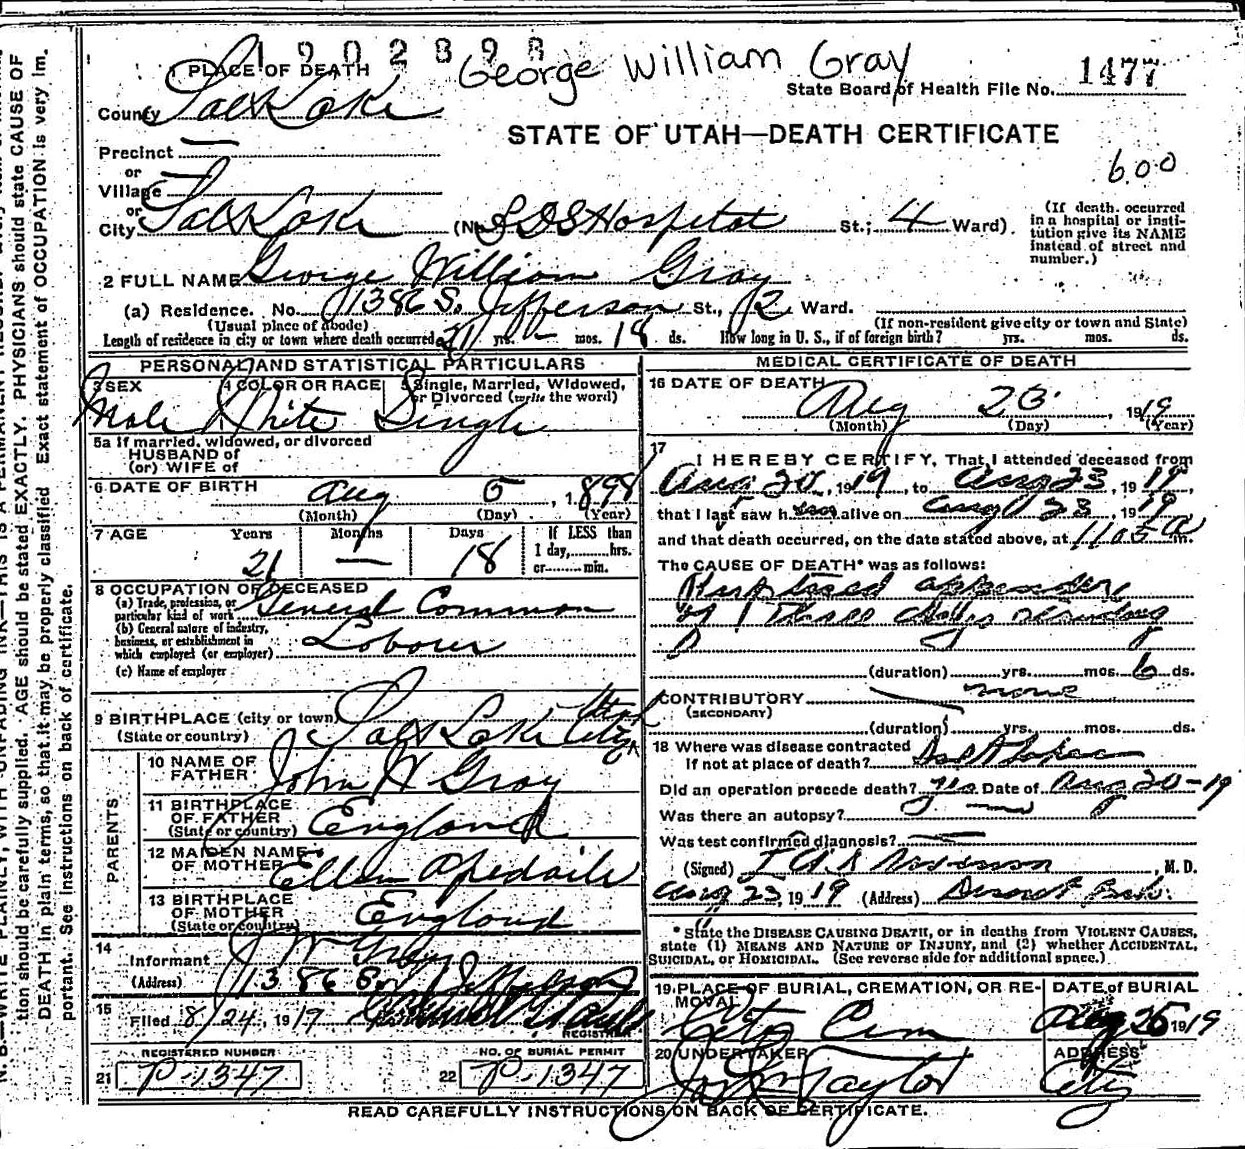 1902898
George William Gray
1 PLACE OF DEATH
State Board of Health File No. 1477
County Salt Lake
STATE OF UTAH—DEATH CERTIFICATE
Precinct —
600
or
Village —
or
City Salt Lake (No. LDS Hospital St.; 4 Ward).
(If death occurred in a hospital or institution give its NAME instead of street and number.)
2 FULL NAME George William Gray
(a) Residence. No. 1386 S. Jefferson St., 2 Ward.
(Usual place of abode) (If non-resident give city or town and State)
Length of residence in city or town where death occurred 21 yrs. mos. 18 ds. How long in U. S., if of foreign birth? yrs. mos. ds.
PERSONAL AND STATISTICAL PARTICULARS
3 SEX 4 COLOR OR RACE 5 Single, Married, Widowed, or Divorced (write the word)
Male White Single
5a If married, widowed, or divorced
HUSBAND of
(or) WIFE of
6 DATE OF BIRTH
Aug 5, 1898
(Month) (Day) (Year)
7 AGE Years Months Days If LESS than
1 day, hrs.
or min.
21 — 18
8 OCCUPATION OF DECEASED
(a) Trade, profession, or particular kind of work General Common
(b) General nature of industry, business, or establishment in which employed (or employer) Labour
(c) Name of employer
9 BIRTHPLACE (city or town) Salt Lake City Utah
(State or country)
PARENTS
10 NAME OF FATHER John W Gray
11 BIRTHPLACE OF FATHER England
(State or country)
12 MAIDEN NAME OF MOTHER Ellen Apedaile
13 BIRTHPLACE OF MOTHER England
(State or country)
14 Informant J W Gray
(Address) 1386 So Jefferson
15 Filed 8/24, 1919
REGISTRAR
REGISTERED NUMBER NO. OF BURIAL PERMIT
21 P-1347 22 P-1347
MEDICAL CERTIFICATE OF DEATH
16 DATE OF DEATH
Aug 23, 1919
(Month) (Day) (Year)
17 I HEREBY CERTIFY, That I attended deceased from
Aug 20, 1919, to Aug 23, 1919,
that I last saw him alive on Aug 23, 1919
and that death occurred, on the date stated above, at 1105 a m.
The CAUSE OF DEATH* was as follows:
Ruptured appendix
of three days standing
(duration) yrs. mos. 6 ds.
CONTRIBUTORY none
(SECONDARY)
(duration) yrs. mos. ds.
18 Where was disease contracted
If not at place of death? Salt Lake
Did an operation precede death? yes Date of Aug 20-19
Was there an autopsy? —
Was test confirmed diagnosis? —
(Signed) M. D.
Aug 23, 1919 (Address) Deseret Bank.
* State the DISEASE CAUSING DEATH, or in deaths from VIOLENT CAUSES,
state (1) MEANS AND NATURE OF INJURY, and (2) whether ACCIDENTAL,
SUICIDAL, or HOMICIDAL. (See reverse side for additional space.)
19 PLACE OF BURIAL, CREMATION, OR REMOVAL DATE of BURIAL
City Cem Aug 25 1919
20 UNDERTAKER ADDRESS
Taylor City
READ CAREFULLY INSTRUCTIONS ON BACK OF CERTIFICATE.
N. B.—WRITE PLAINLY, WITH UNFADING INK—THIS IS A PERMANENT RECORD.
tion should be carefully supplied. AGE should be stated EXACTLY. PHYSICIANS should state CAUSE OF
DEATH in plain terms, so that it may be properly classified. Exact statement of OCCUPATION is very im-
portant. See instructions on back of certificate.